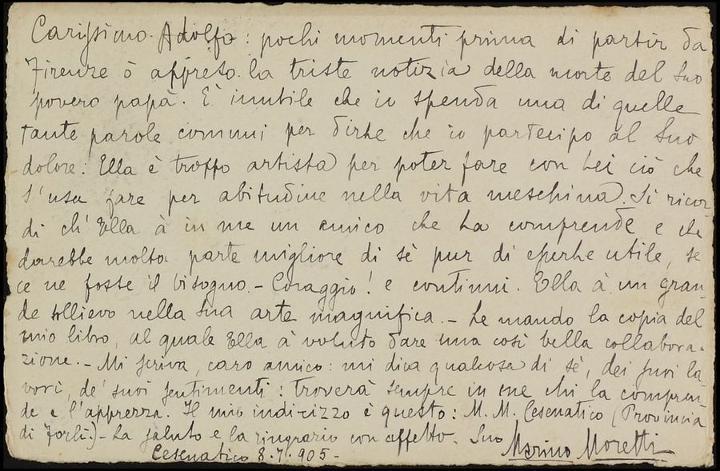 Carissimo Adolfo: pochi momenti prima di partir da
Firenze ò appreso la triste notizia della morte del Suo
povero papà. È inutile che io spenda una di quelle
tante parole comuni per dirle che io partecipo al Suo
dolore: Ella è troppo artista per poter fare con Lei ciò che
s'usa fare per abitudine nella vita meschina. Si ricor-
di ch'Ella à in me un amico che La comprende e che
darebbe molta parte migliore di sè pur di esserle utile, se
ce ne fosse il bisogno. - Coraggio! e continui. Ella à un gran-
de sollievo nella Sua arte magnifica. - Le mando la copia del
mio libro, al quale Ella à voluto dare una così bella collabora-
zione. - Mi scriva, caro amico: mi dica qualcosa di sè, dei suoi la-
vori, de' suoi sentimenti: troverà sempre in me chi La compren-
de e l'apprezza. Il mio indirizzo è questo: M. M. Cesenatico (Provincia
di Forlì.) - La saluto e La ringrazio con affetto. Suo Marino Moretti
Cesenatico 8.7.905 -